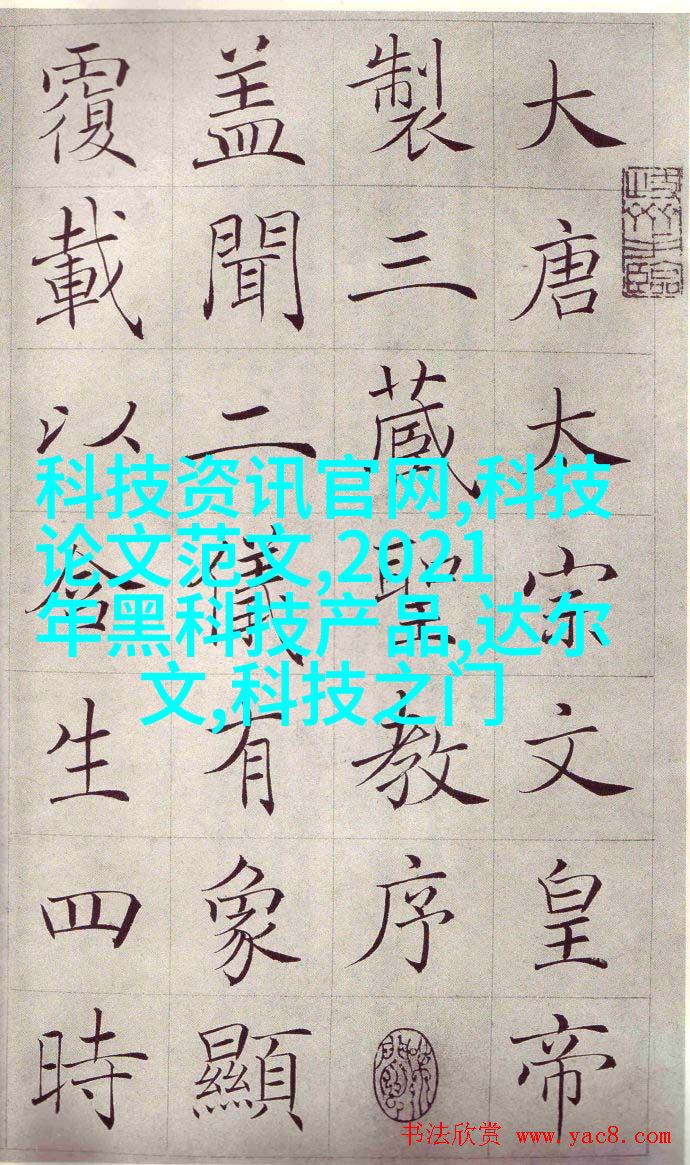 大唐太宗文皇帝
製三藏聖教序
盖聞二儀有象顯
覆載以含生四時
科技资讯官网,科技
论文范文,2021
年黑科技产品,达尔
文,科技之门
书法欣赏 www.yac8.com